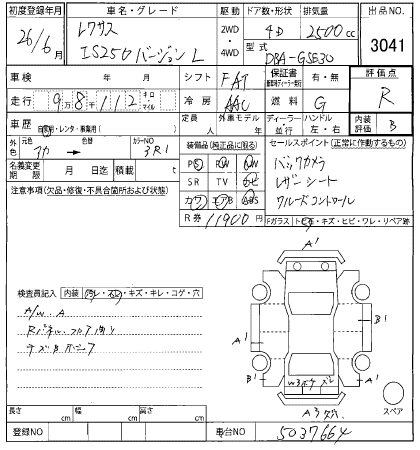 初度登録年月 車名・グレード 駆動 ドア数・形状 排気量 出品NO.
26/6月 レクサス 2WD・4WD 4D 2500cc 3041
IS250 バージョン L 型式 DBA-GSE30
車検 年 月 シフト FAT 保証書 有・無 評価点
走行 9万8千112 キロ マイル 冷房 AAC 燃料 G R
車歴 自家用・レンタ・事業用( ) 定員 人 外車モデル 年 ディーラー 並行 ハンドル 左・右 内装評価 B
外色 元色 アカ 色替 カラーNO 3R1
装備品(純正品に限る) セールスポイント(正常に作動するもの)
PS PW バックカメラ
名義変更期限 月 日迄 積載 t SR TV ナビ レザーシート
注意事項(欠品・修復・不具合箇所および状態) カワ エアB ABS クルーズコントロール
R券 11900円 Fガラス トビ石・キズ・ヒビ・ワレ・リペア跡
A1
検査員記入 内装 ヨゴレ・スレ・キズ・キレ・コゲ・穴
A/W.A
B1
A1
A1
B1
A1
スペア
長さ cm 幅 cm 高さ cm
登録NO 車台NO 5037664